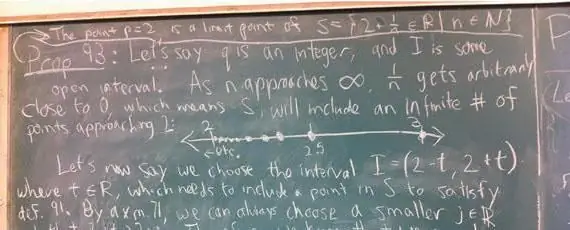 → The point p=2, is a limit point of S = {2+1/n ∈ ℝ | n ∈ N}
Prop 93: Let's say q is an integer, and I is some
open interval. As n approaches ∞, 1/n gets arbitrarily
close to 0, which means S, will include an infinite # of
points approaching 2:
2 3
←etc. 2.5
Let's now say we choose the interval I = (2-t, 2+t)
where t ∈ ℝ, which needs to include a point in S to satisfy
def. 91. By axm. 71, we can always choose a smaller j ∈ ℝ